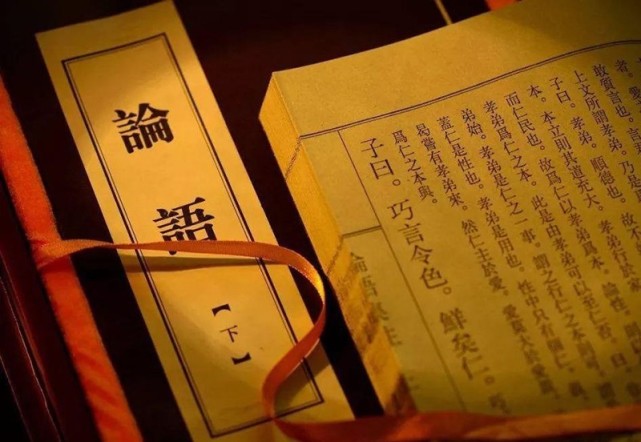 論語
【下】
上文所謂孝弟。乃
子曰。孝弟。順德也。故不
本。本立則其道充大。孝弟行於
而仁民也。故爲仁以孝弟爲本。論性。
孝弟爲仁之本。此是由孝弟可以至仁否。曰
弟始。孝弟是仁之一事。謂之行仁之本則可。
蓋仁是性也。孝弟是用也。性中只有箇仁
曷嘗有孝弟來。然仁主於愛。愛莫大於愛親。
爲仁之本與。
子曰。巧言令色。鮮矣仁。巧
論語集註